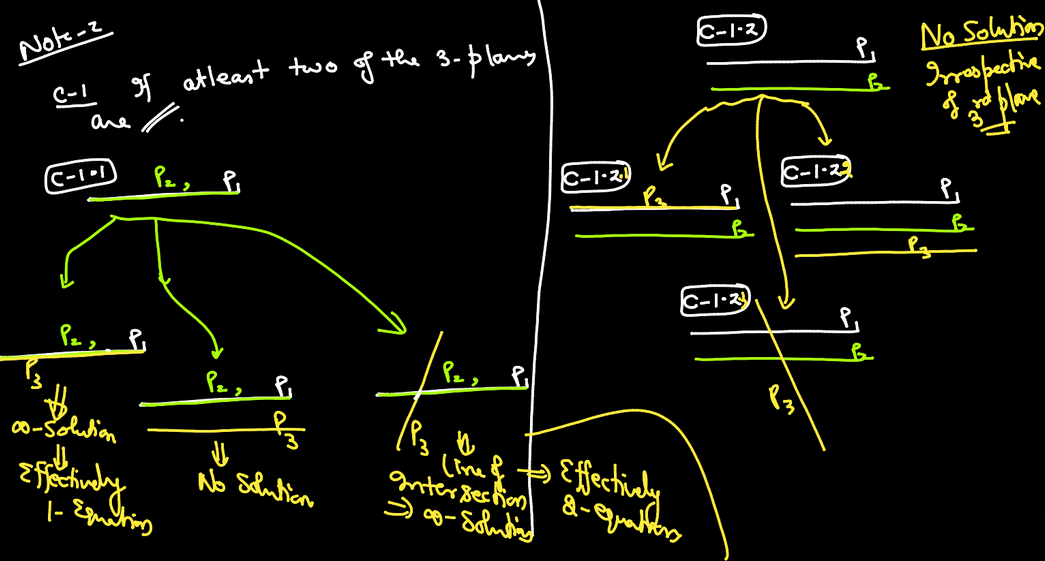 Note-2
C-1 If atleast two of the 3-planes
are //.
C-1.1
P2, P1
P2, P1
P3
∞-Solution
Effectively
1-Equation
P2, P1
P3
No Solution
P2, P1
P3
Line of
Intersection
⇒ ∞-Solution
⇒ Effectively
2-equations
C-1.2
P1
P2
No Solution
Irrespective
of 3rd plane
C-1.2.1
P3 P1
P2
C-1.2.2
P1
P2
P3
C-1.2
P1
P2
P3